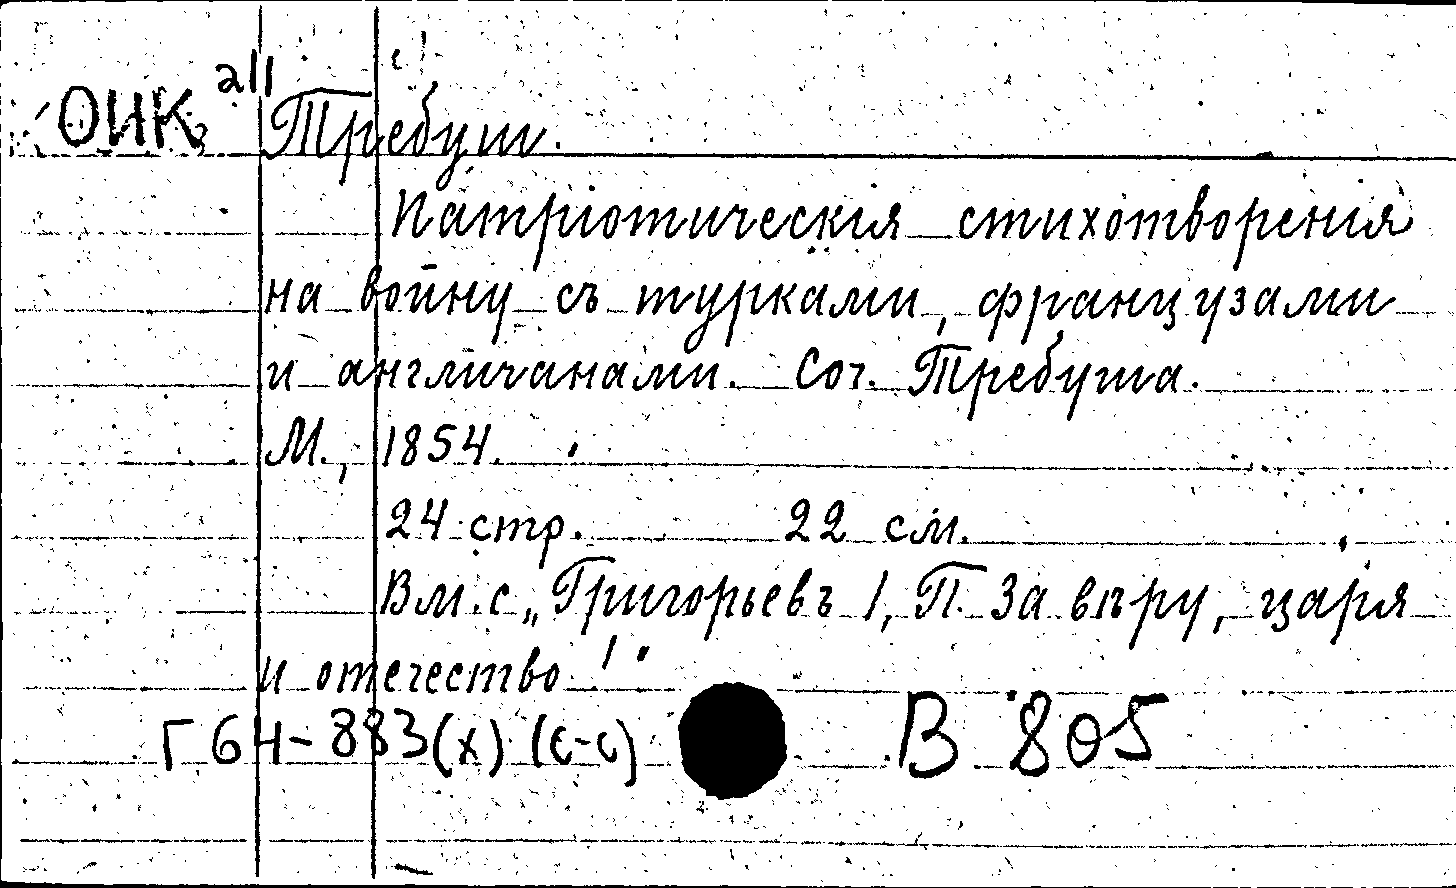 ОИК а11
Требуш.
Патріотическія стихотворенія
на войну съ турками, французами
и англичанами. Соч. Требуша.
М., 1854.
24 стр. 22 см.
Вм. с „Григорьевъ 1, П. За вѣру, царя
и отечество!"
Г 64-883(х) (с-с) В 805